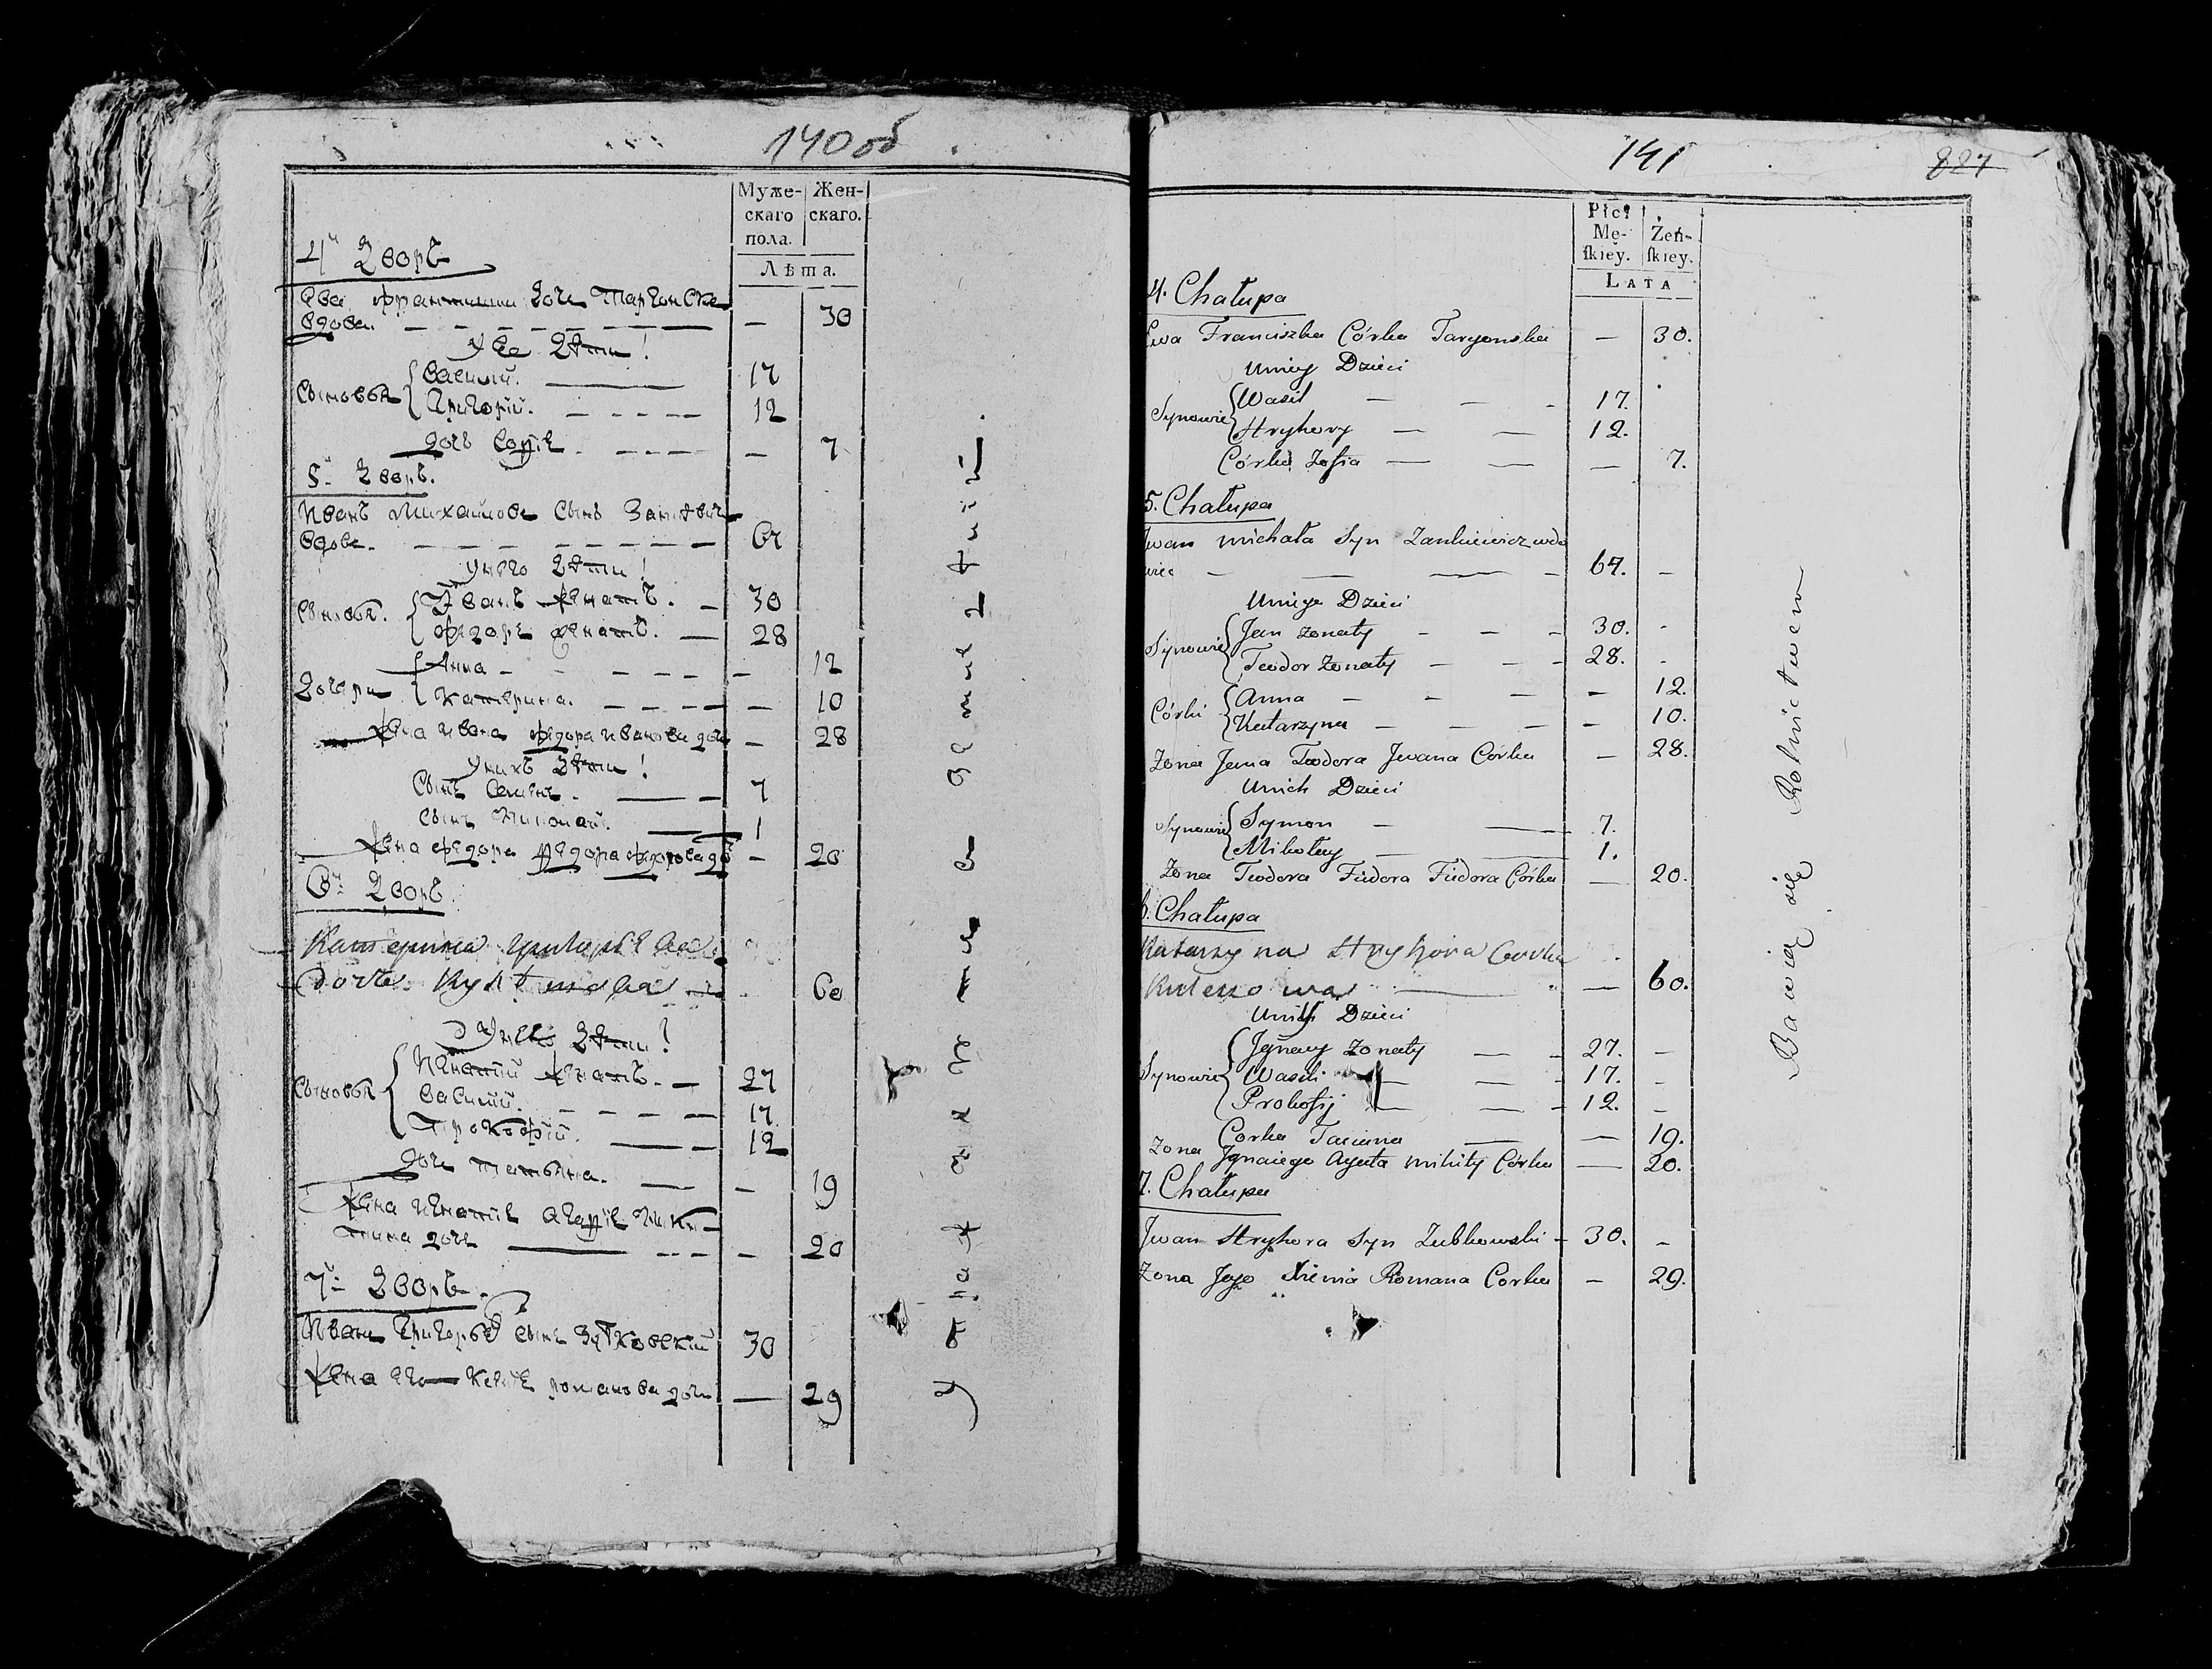 140 об
Муже- Жен-
скаго скаго.
пола.
Лѣта.
4й Дворъ
Ева Францишки дочь Таргонска
вдова. — 30
У ее Дѣти!
Сыновья Василий. 17
Григорій. 12
дочь Софія. — 7
5й Дворъ.
Иванъ Михайлова Сынъ
вдове. 67
У него Дѣти!
Сыновья. Иванъ женатъ. 30
Федоръ женатъ. 28
Дочери Анна — 12
Катерина. — 10
жена Ивана Федора Иванова дочь — 28
У нихъ Дѣти!
Сынъ Семѣнъ. 7
Сынъ Николай. 1
жена Федора Федора Федорова до — 20
6й Дворъ.
Катерина
дочь 60
У нее Дѣти!
Сыновья Игнатій женатъ. 27
Василий. 17
Прокофій. 12
дочь татьяна. — 19
жена Игнатія Агафія Мики-
тина дочь — 20
7й Дворъ.
Иванъ Григорьев сынъ Зубковский 30
жена его Ксенія романова дочь — 29
141
827
Płci
Mę- Żeń-
ſkiey. ſkiey.
LATA
4. Chałupa
Ewa Franciszka Córka Targonska — 30.
Uniey Dzieci
Synowie Wasil 17.
Hryhory 12.
Córka Zofia — 7.
5. Chałupa
Jwan michała Syn Zankiewicz wdo
wiec 67. —
Uniego Dzieci
Synowie Jan żonaty 30. -
Teodor żonaty 28. -
Córki Anna — 12.
Katarzyna — 10.
Żona Jana Teodora Jwana Córka — 28.
Unich Dzieci
Synowie Symon 7.
Mikołay 1.
Żona Teodora Fiedora Fiedora Córka — 20.
6. Chałupa
Katarzyna Hryhora Corka
— 60.
Dzieci
Synowie Jgnacy żonaty 27. —
Wasili 17. -
Prokofij 12. —
Corka Taciana — 19.
Żona Jgnaciego Agata mikity Córka — 20.
7. Chałupa
Jwan Hryhora Syn Zubkowski 30. -
Żona Jego Romana Corka — 29.
Bawią się Rolnictwem